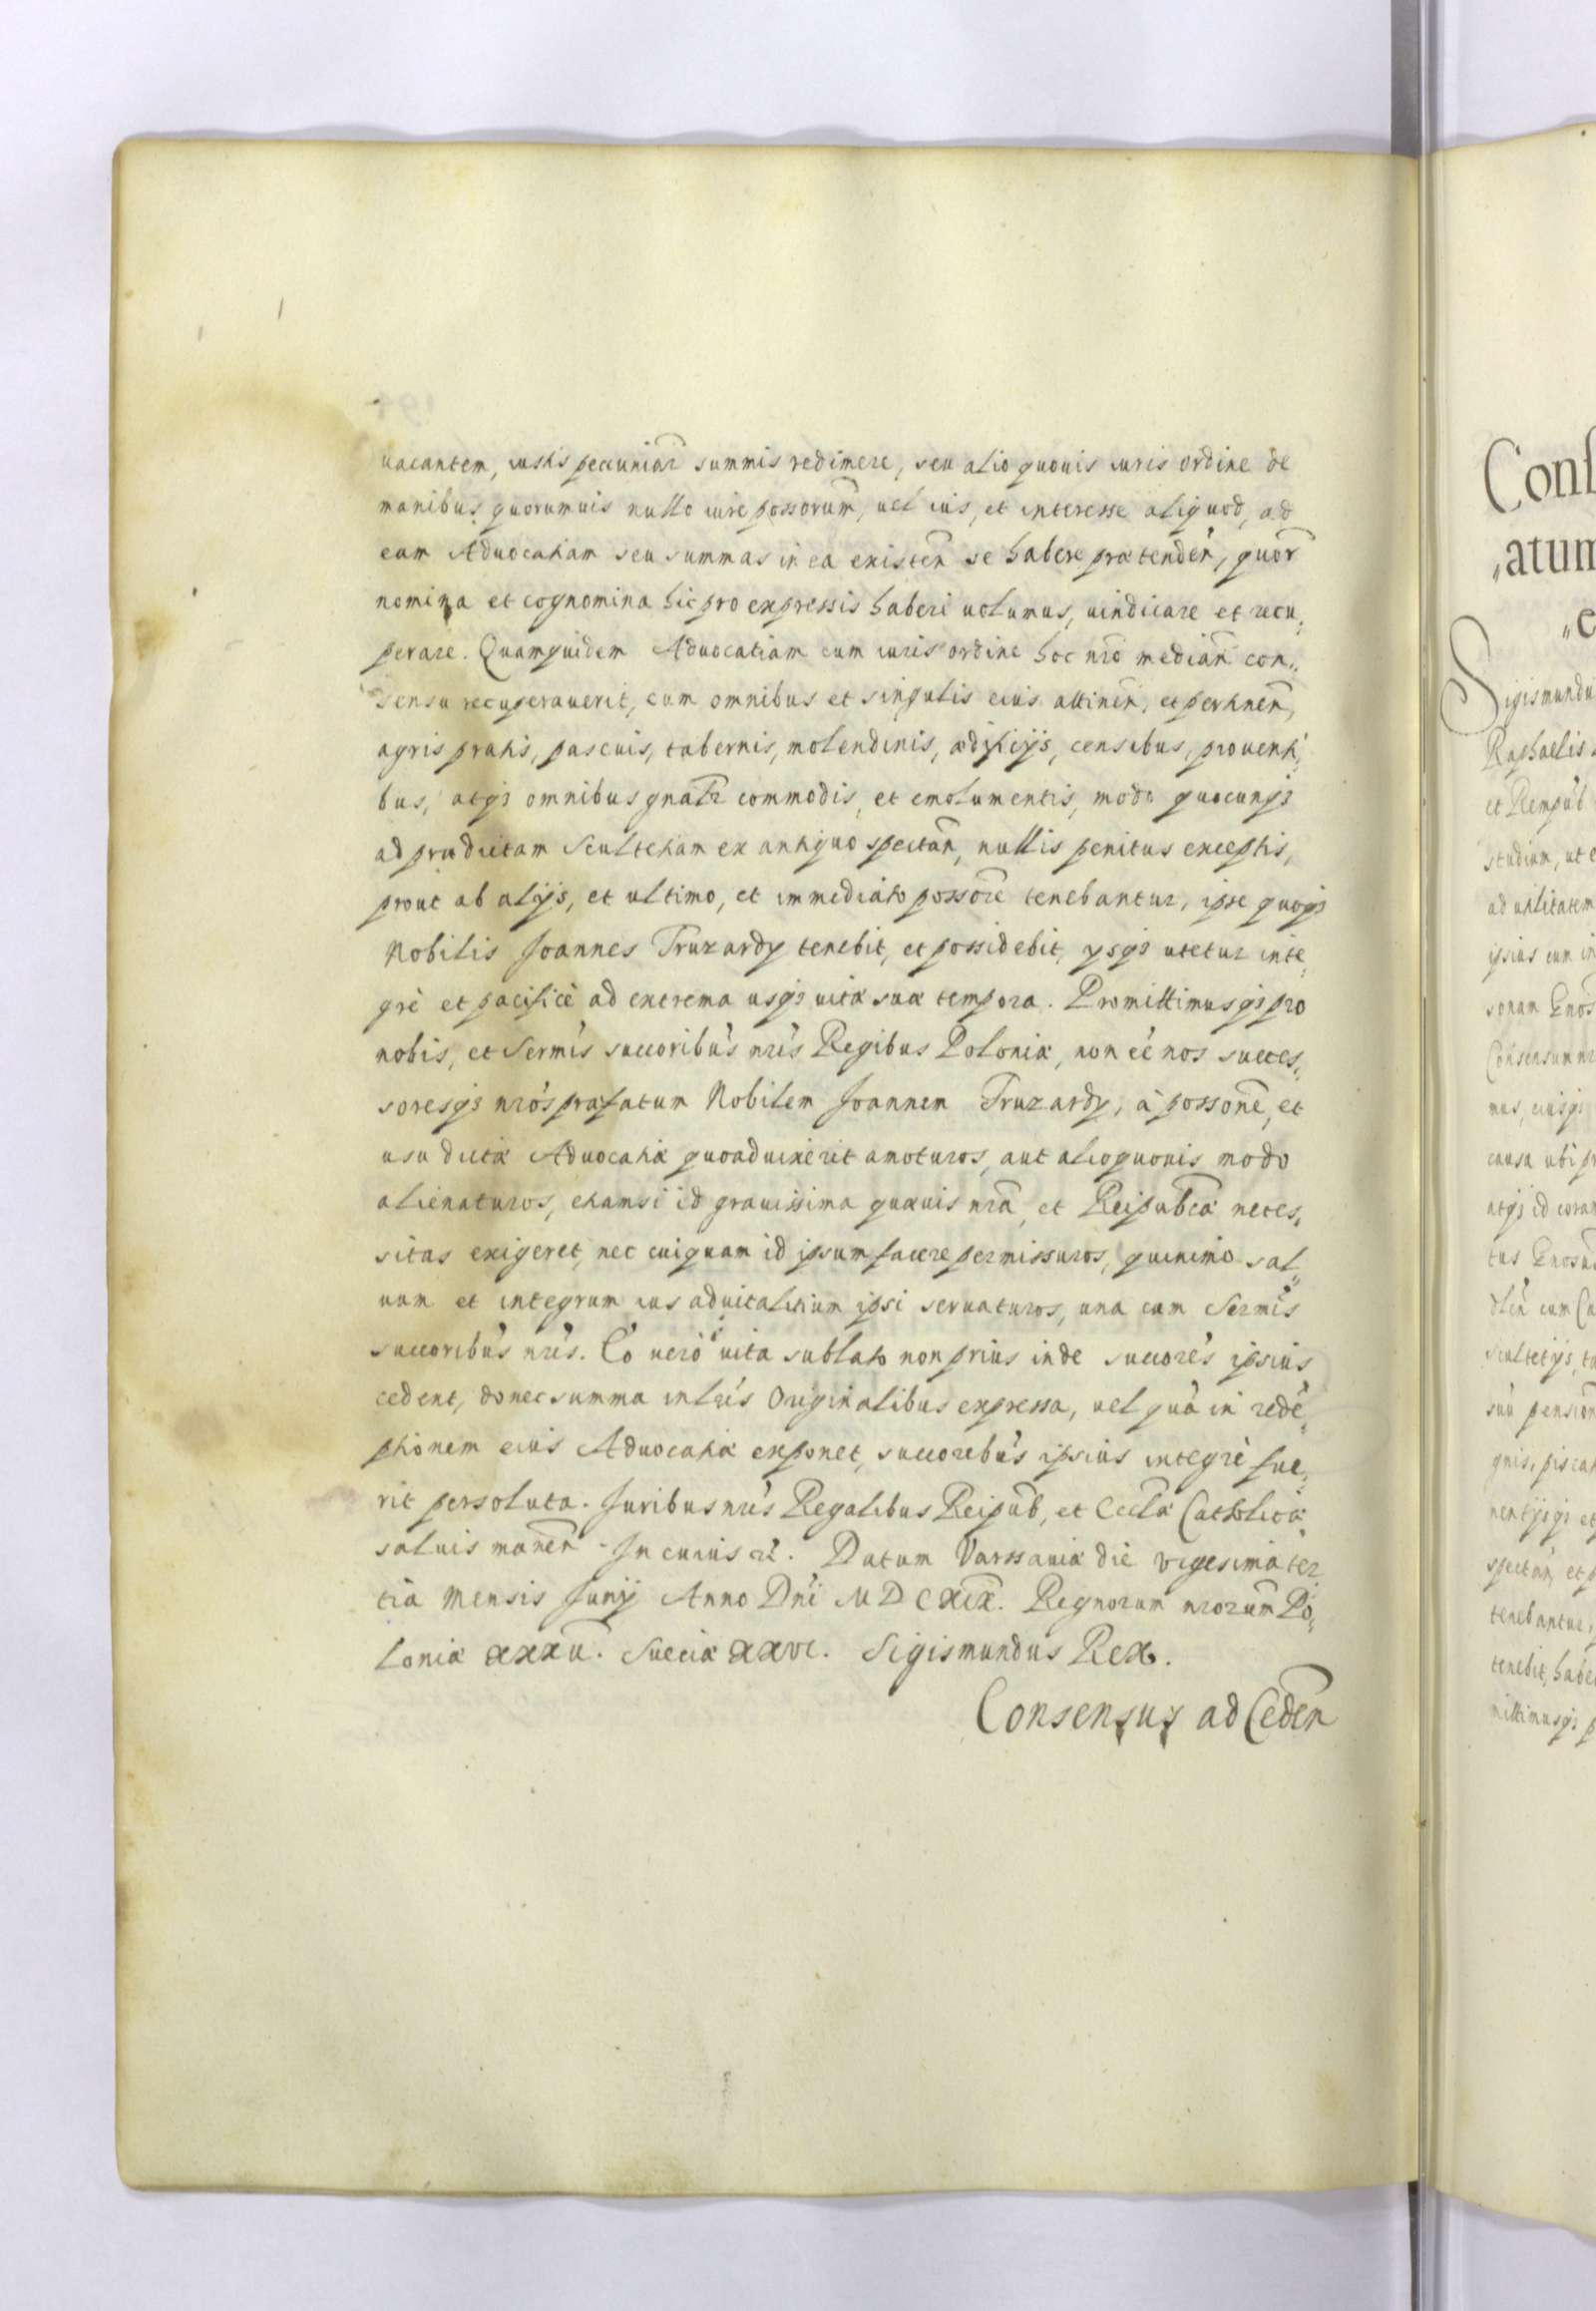 uacantem, iustis pecuniar̄ summis redimere, seu alio quouis iuris ordine de
manibus quorumuis nullo iure possorum̄, uel ius, et interesse aliquod, ad
eam Aduocatiam seu summas in ea existen̄ se habere prætenden̄, quor̄
nomina et cognomina hic pro expressis haberi uolumus, uindicare et recu„
perare. Quamquidem Aduocatiam cum iuris ordine hoc nr̄o median̄ con„
sensu recuperauerit, cum omnibus et singulis eius attinen̄, et pertinen̄,
agris pratis, pascuis, tabernis, molendinis, ædificijs, censibus, prouenti„
bus, atq3 omnibus gnalr̄ commodis, et emolumentis, modo quocunq3
ad prædictam Scultetiam ex antiquo spectan̄, nullis penitus exceptis,
prout ab alijs, et ultimo, et immediato possor̄e tenebantur, ipse quoq3
Nobilis Joannes Truzardy tenebit, et possidebit, ysq3 utetur inte„
grè et pacificè ad extrema usq3 uitæ suæ tempora. Promittimusq3 pro
nobis, et Ser̄mis succoribūs nr̄is Regibus Poloniæ, non eē nos succes„
soresq3 nr̄os præfatum Nobilem Joannem Truzardy, à posson̄e, et
usu dictæ Aduocatiæ quoaduixerit amoturos, aut alioquouis modo
alienaturos, etiamsi id grauissima quæuis nr̄a, et Reipubc̄æ neces„
sitas exigeret, nec cuiquam id ipsum facere permissuros, quinimo sal„
uum et integrum ius aduitalitium ipsi seruaturos, una cum Ser̄mis
succoribūs nr̄is. Eo uerò uita sublato non prius inde succorēs ipsius
cedent, donec summa in lr̄is Originalibus expressa, uel quā in redē„
ptionem eius Aduocatiæ exponet, succoribūs ipsius integrè fue„
rit persoluta. Juribus nr̄is Regalibus Reipub̄, et Eccl̄æ Catholicæ
saluis manen̄. In cuius rẽ. Datum Varssauiæ die vigesima ter„
tia Mensis Junij Anno Dn̄i MDCXIX. Regnorum nr̄orum Po„
loniæ XXXII. Sueciæ XXVI. Sigismundus Rex.
Consensus ad Ceden̄
Cons
„atum
„e
Sigismundu
Raphaelis
et Rempub̄
studium, ut e
ad utilitatem
ipsius cum in
sonam Gnos̄
Consensum nr̄
mus, eiusq3
causa ubi pr
atq3 id coram
tus
cum Ca
Scultetijs, ta
pension
gnis, piscat
nentijsq3 et
spectan̄, et p
tenebantur,
tenebit, habe
mittimusq3 p